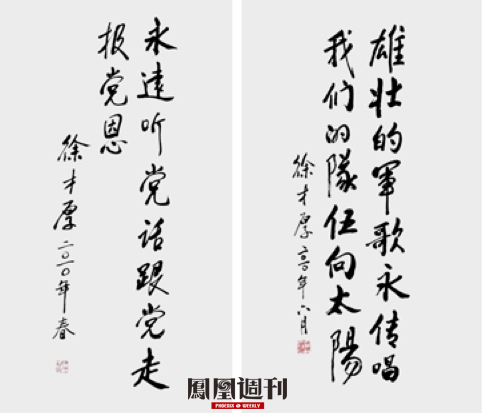 永遠听党话跟党走
报党恩
徐才厚二〇一〇年春
雄壮的軍歌永传唱
我们的隊伍向太陽
徐才厚
鳳凰週刊
PHOENIX WEEKLY